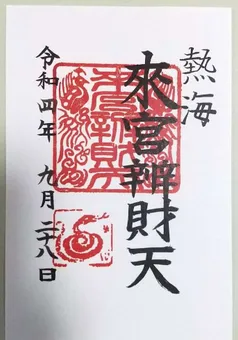 熱海
來宮辨財天
令和四年 九月二十八日